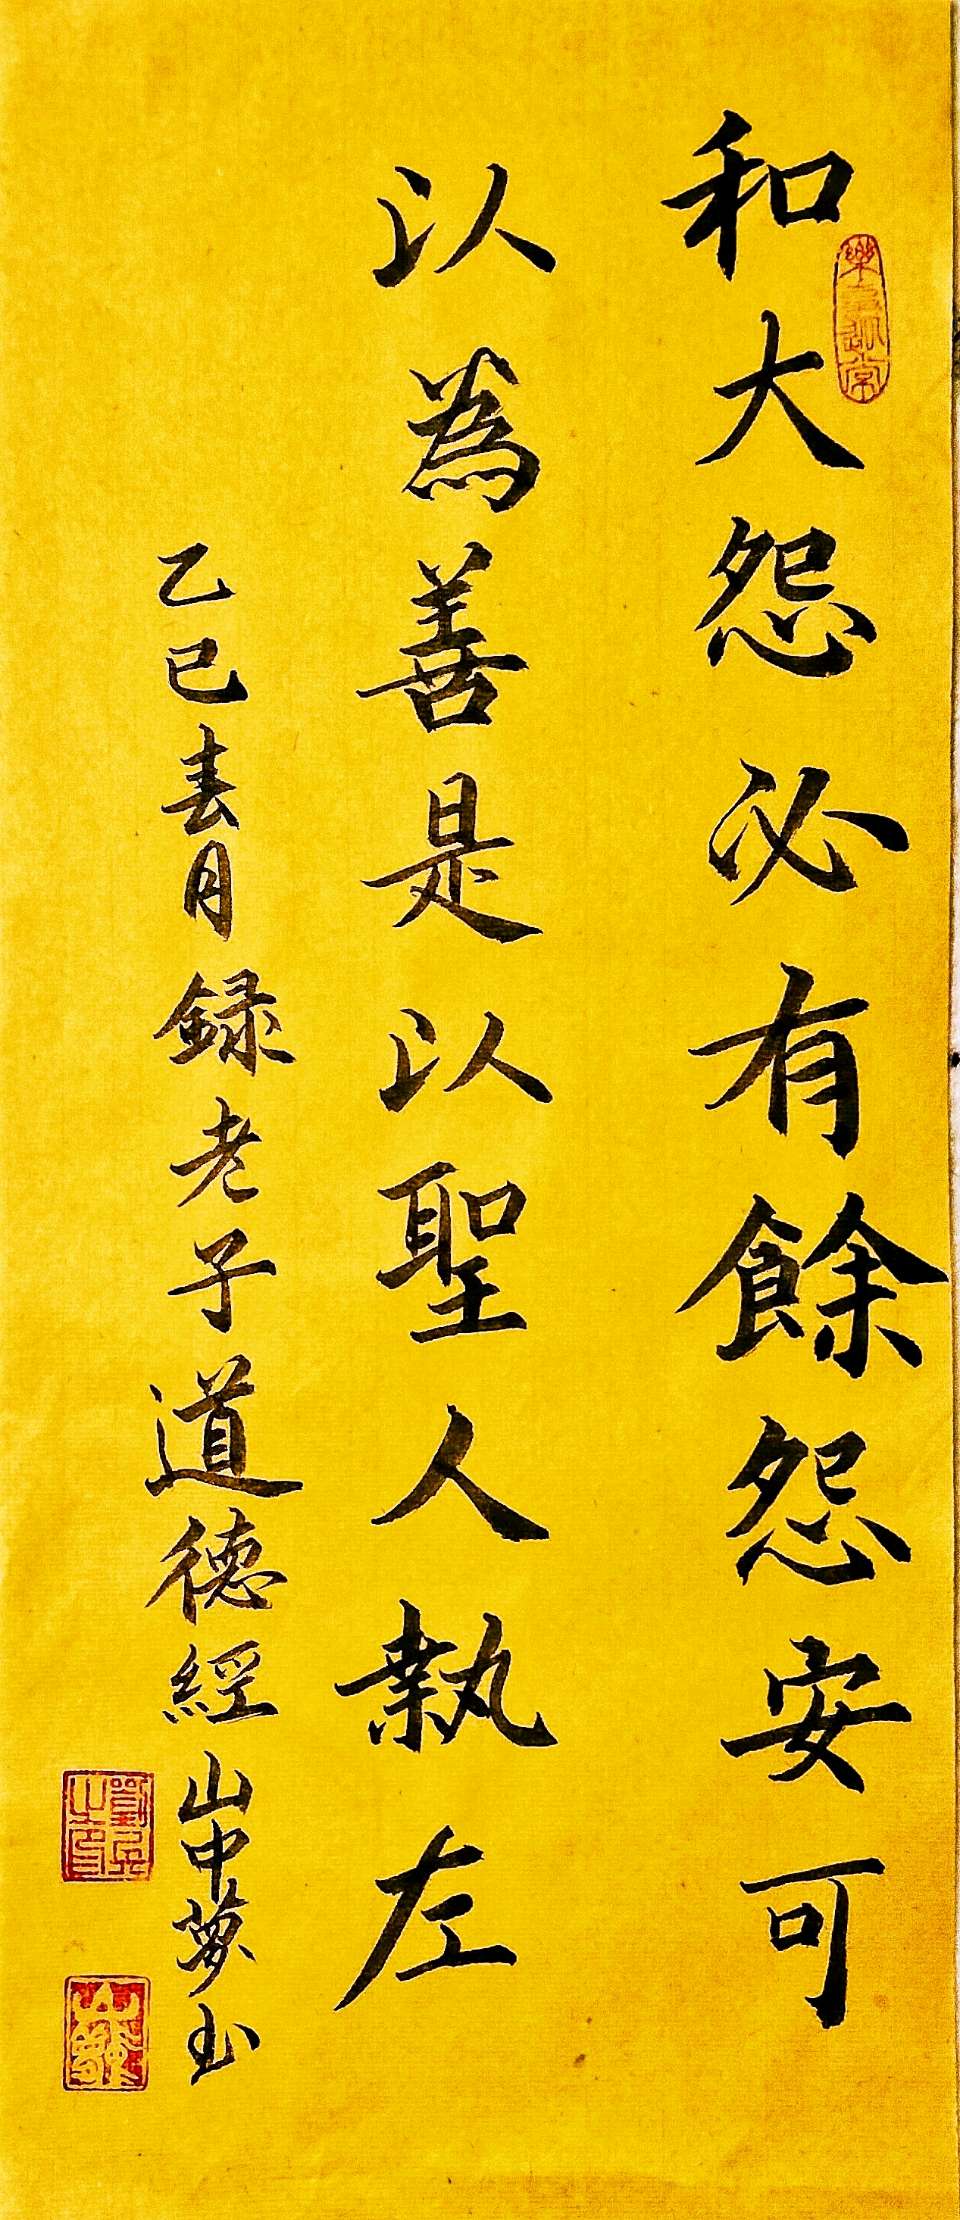 和大怨必有餘怨安可
以為善是以聖人執左
乙巳春月録老子道德經山中夢書